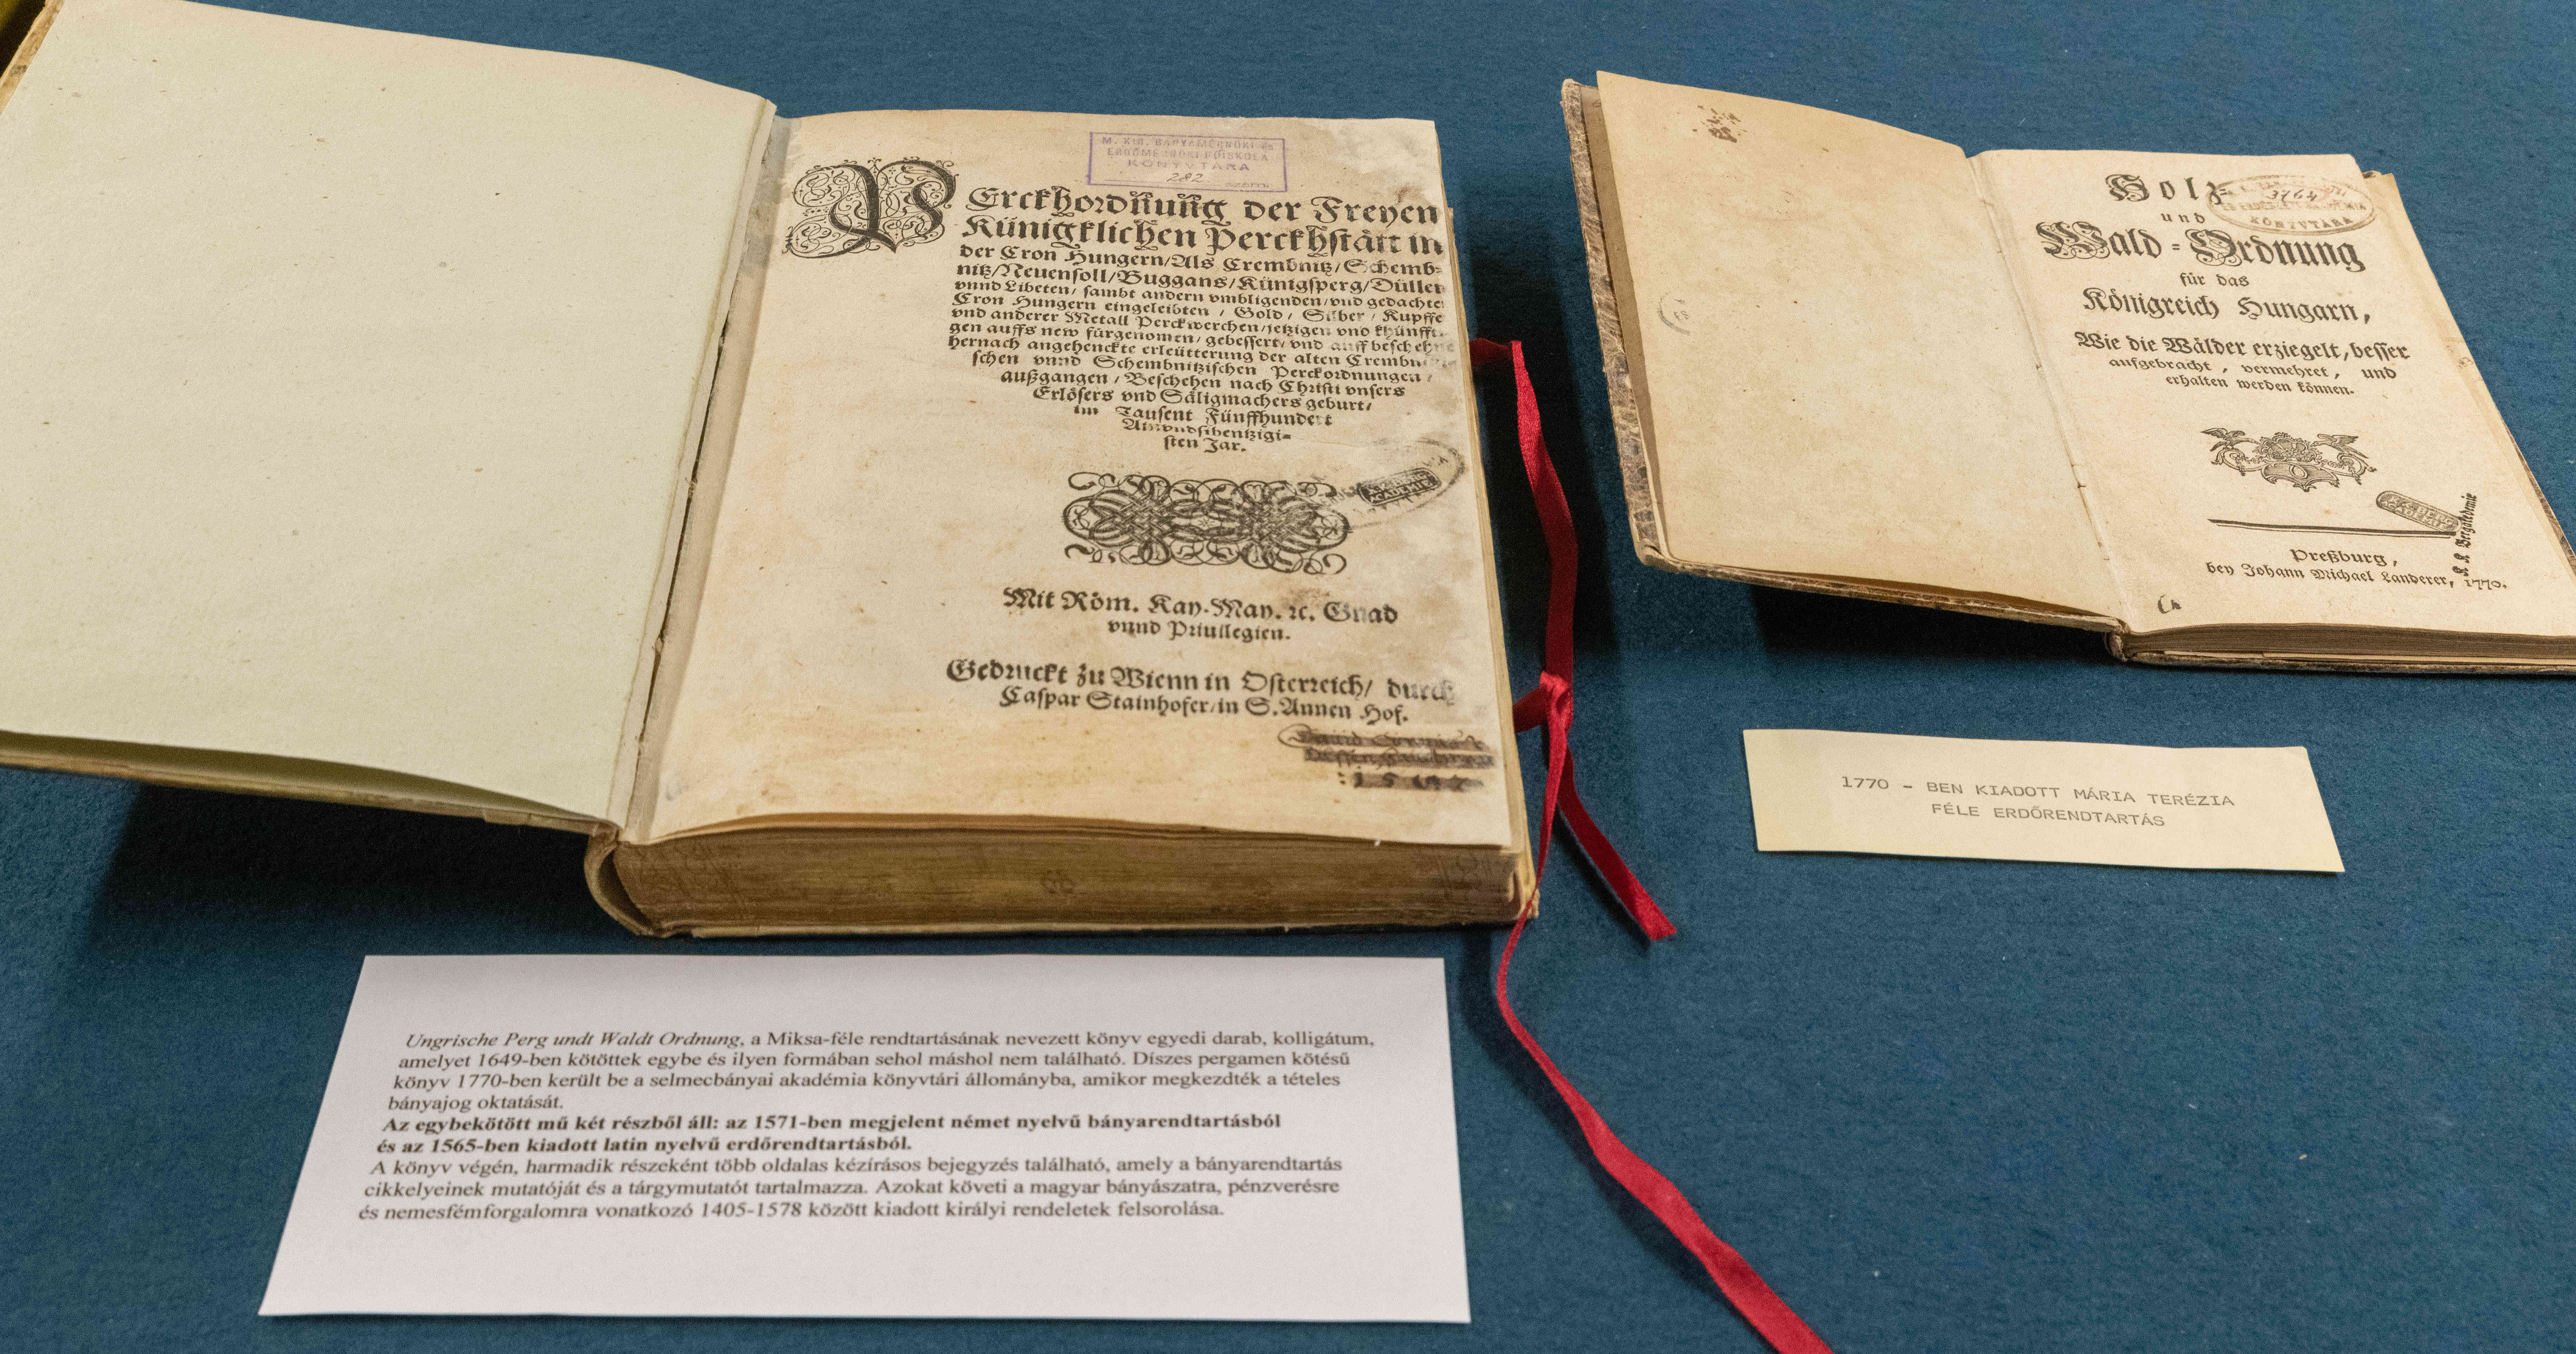 M. KIR. BÁNYAMÉRNÖKI ÉS
ERDŐMÉRNÖKI FŐISKOLA
KÖNYVTÁRA
282 szám
PErckhordnung der Freyen
Künigklichen Perckhstätt in
der Cron Hungern/Als Crembnitz/Schemb-
nitz/Neuensoll/Buggans/Künigsperg/Düllen
vnnd Libeten/ sambt andern vmbligenden/vnd gedachter
Cron Hungern eingeleibten / Gold/ Silber / Kupffe
vnd anderer Metall Perckwerchen/jetzigen vnd khünffti
gen auffs new fürgenomen/ gebessert/ vnd auff beschehne
hernach angehenckte erleütterung der alten Crembni
schen vnnd Schembnitzischen Perckordnungen /
außgangen / Beschehen nach Christi vnsers
Erlösers vnd Säligmachers geburt/
im Tausent Fünffhundert
Ainvndsibentzigi-
sten Jar.
Mit Röm. Kay. May. ꝛc. Gnad
vnnd Priuilegien.
Gedruckt zu Wienn in Osterreich/ durch
Caspar Stainhofer/in S. Annen Hof.
Holz-
und
Wald-Ordnung
für das
Königreich Hungarn,
Wie die Wälder erziegelt, besser
aufgebracht, vermehret, und
erhalten werden können.
3764
KÖNYVTÁRA
K. K. Bergakademie
Preßburg,
bey Johann Michael Landerer, 1770.
1770 - BEN KIADOTT MÁRIA TERÉZIA
FÉLE ERDŐRENDTARTÁS
Ungrische Perg undt Waldt Ordnung, a Miksa-féle rendtartásának nevezett könyv egyedi darab, kolligátum,
amelyet 1649-ben kötöttek egybe és ilyen formában sehol máshol nem található. Díszes pergamen kötésű
könyv 1770-ben került be a selmecbányai akadémia könyvtári állományba, amikor megkezdték a tételes
bányajog oktatását.
Az egybekötött mű két részből áll: az 1571-ben megjelent német nyelvű bányarendtartásból
és az 1565-ben kiadott latin nyelvű erdőrendtartásból.
A könyv végén, harmadik részeként több oldalas kézírásos bejegyzés található, amely a bányarendtartás
cikkelyeinek mutatóját és a tárgymutatót tartalmazza. Azokat követi a magyar bányászatra, pénzverésre
és nemesfémforgalomra vonatkozó 1405-1578 között kiadott királyi rendeletek felsorolása.